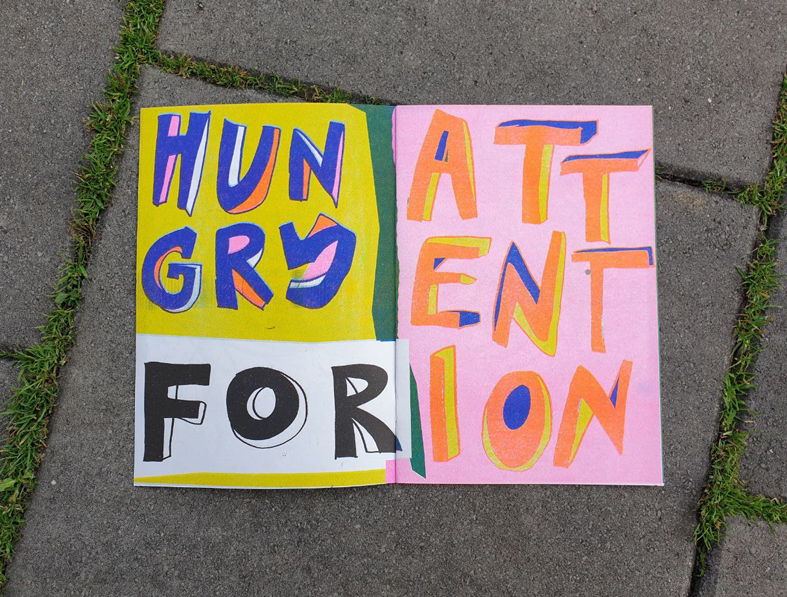 HUN
GRY
FOR
ATT
ENT
ION